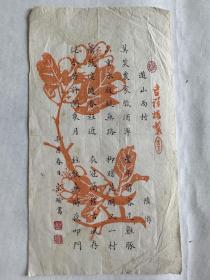 遊山西村 陸游
莫笑農家臘酒渾 豐年留客足雞豚
山重水複疑無路 柳暗花明又一村
簫鼓追隨春社近 衣冠簡樸古風存
從今若許閒乘月 拄杖無時夜叩門
春月
書
吉祥